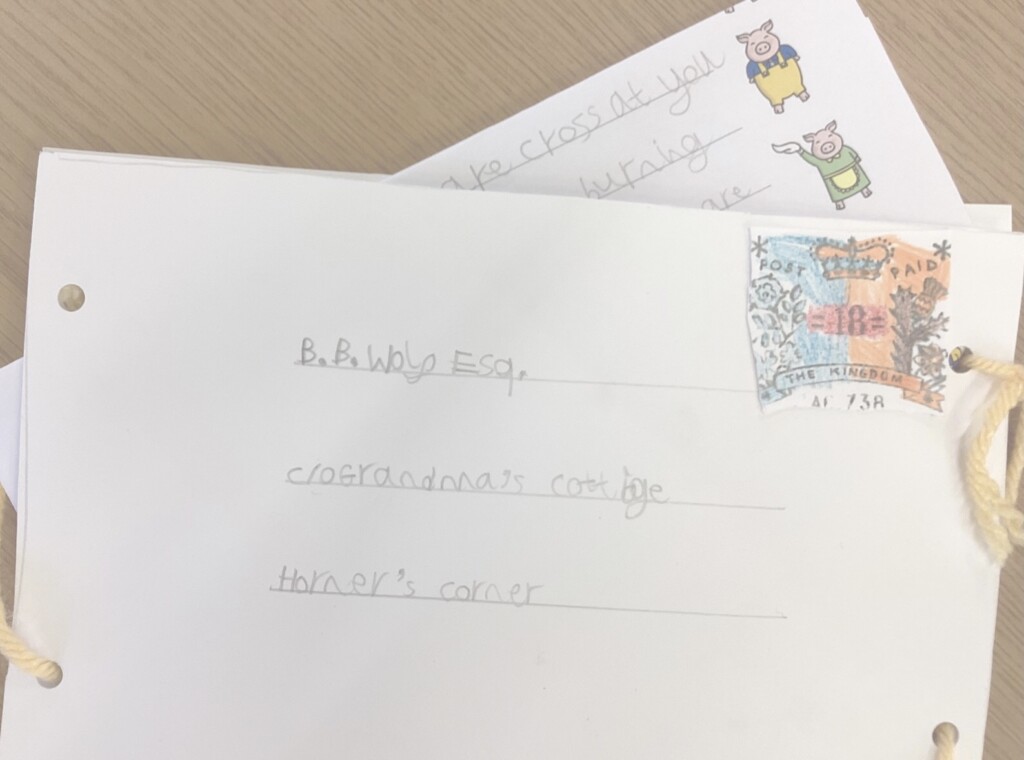 are cross at you
burning
are
POST PAID
=18=
THE KINGDOM
B.B. Wolf Esq.
c/o Grandma's cottige
Horner's corner